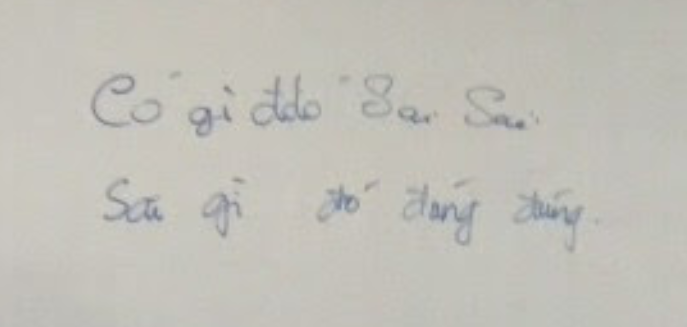 Có gì đđó Sai Sai.
Sai gì đó đang đúng.